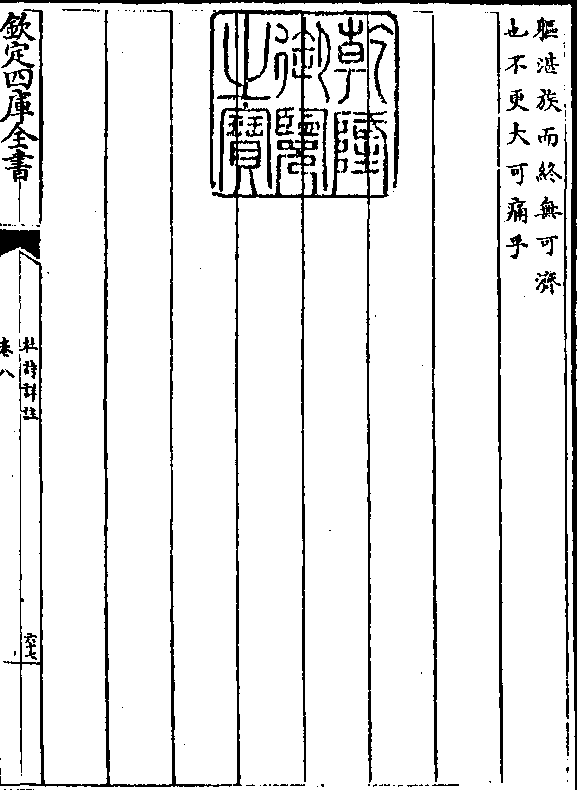 軀湛族而終無可濟
也不更大可痛乎
乾隆御覽之寶
欽定四庫全書
杜詩詳註
卷八
六十七